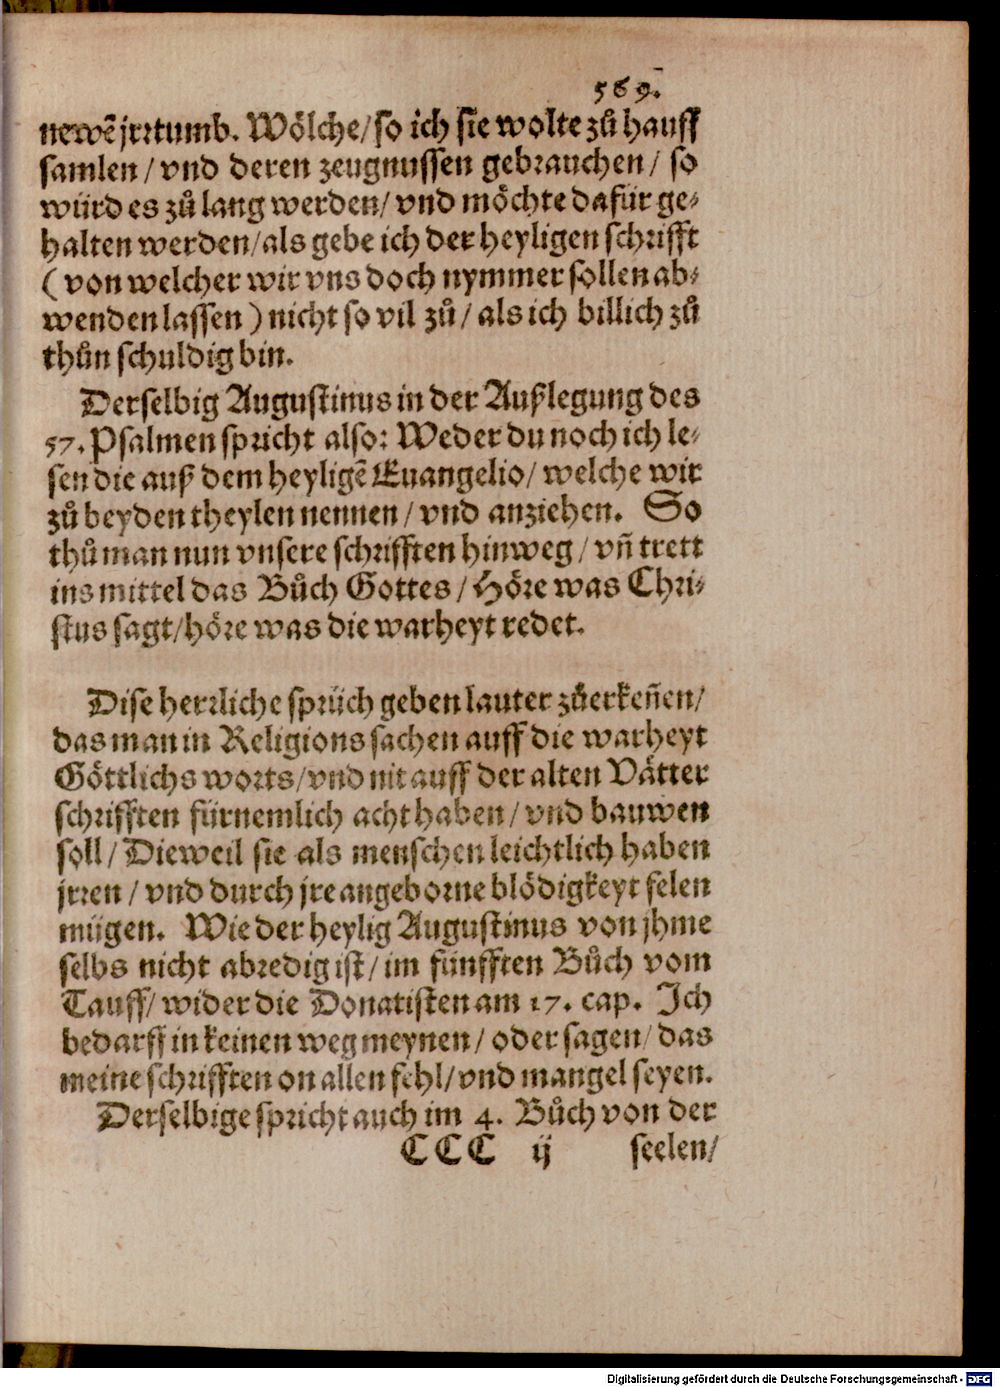 569.
newẽ jrrtumb. Wölche/ so ich sie wolte zů hauff
samlen / vnd deren zeugnussen gebrauchen / so
würd es zů lang werden/ vnd möchte dafür ge⸗
halten werden/ als gebe ich der heyligen schrifft
( von welcher wir vns doch nymmer sollen ab⸗
wenden lassen ) nicht so vil zů / als ich billich zů
thůn schuldig bin.
Derselbig Augustinus in der Außlegung des
57. Psalmen spricht also: Weder du noch ich le⸗
sen die auß dem heyligẽ Euangelio/ welche wir
zů beyden theylen nennen / vnd anziehen. So
thů man nun vnsere schrifften hinweg / vñ trett
ins mittel das Bůch Gottes / Höre was Chri⸗
stus sagt/ höre was die warheyt redet.
Dise herrliche sprüch geben lauter zůerkeñen/
das man in Religions sachen auff die warheyt
Göttlichs worts/ vnd nit auff der alten Vätter
schrifften fürnemlich acht haben / vnd bauwen
soll / Dieweil sie als menschen leichtlich haben
jrren / vnd durch jre angeborne blödigkeyt felen
mügen. Wie der heylig Augustinus von jhme
selbs nicht abredig ist / im fünfften Bůch vom
Tauff/ wider die Donatisten am 17. cap. Ich
bedarff in keinen weg meynen / oder sagen/ das
meine schrifften on allen fehl/ vnd mangel seyen.
Derselbige spricht auch im 4. Bůch von der
CCC ij seelen/
Digitalisierung gefördert durch die Deutsche Forschungsgemeinschaft - DFG